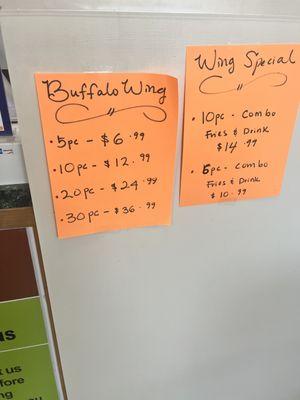 Buffalo Wing
• 5pc - $6.99
• 10pc - $12.99
• 20pc - $24.99
• 30pc - $36.99
Wing Special
• 10pc - Combo
Fries & Drink
$14.99
• 5pc - Combo
Fries & Drink
$10.99
us
t us
fore
ng